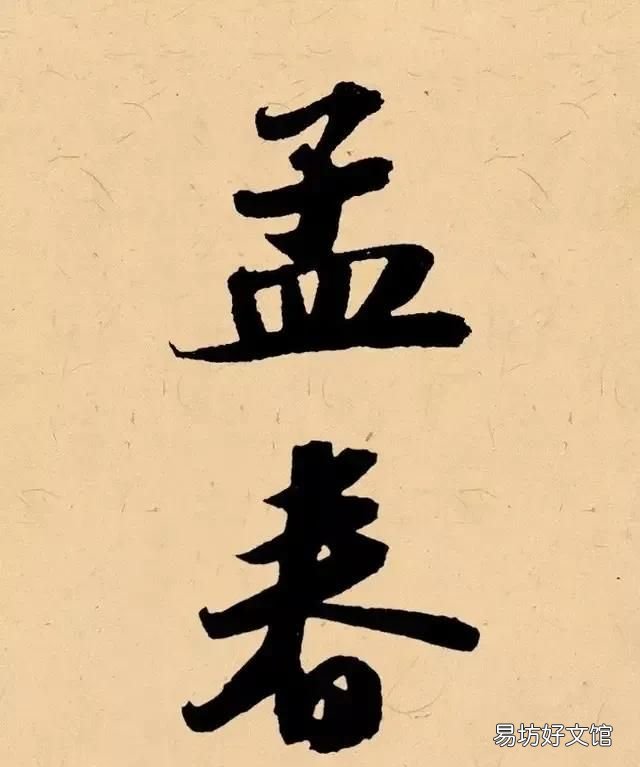 孟
春
易坊好文馆